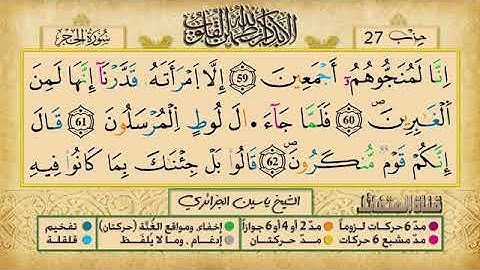 حِزْب 27
ألا بذكر الله تطمئن القلوب
سُورَةُ الحِجْرِ
اِنَّا لَمُنَجُّوهُمُۥٓ أَجْمَعِينَ 59 إِلَّا اَمْرَأَتَهُۥ قَدَّرْنَآ إِنَّهَا لَمِنَ
اَلْغَٰبِرِينَۖ 60 فَلَمَّا جَآءَ الَ لُوطٍ اِلْمُرْسَلُونَ 61 قَالَ
إِنَّكُمْ قَوْمٌ مُّنكَرُونَۖ 62 قَالُوا۟ بَلْ جِئْنَٰكَ بِمَا كَانُوا۟ فِيهِ
الشيخ ياسين الجزائري
مدّ 6 حركات لزوماً مدّ 2 أو 4 أو 6 جوازاً إخفاء، ومواقع الغُنَّة (حركتان) تفخيم
مدّ مشبع 6 حركات مدّ حركتان إدغام، وما لا يُلفَظ قلقلة